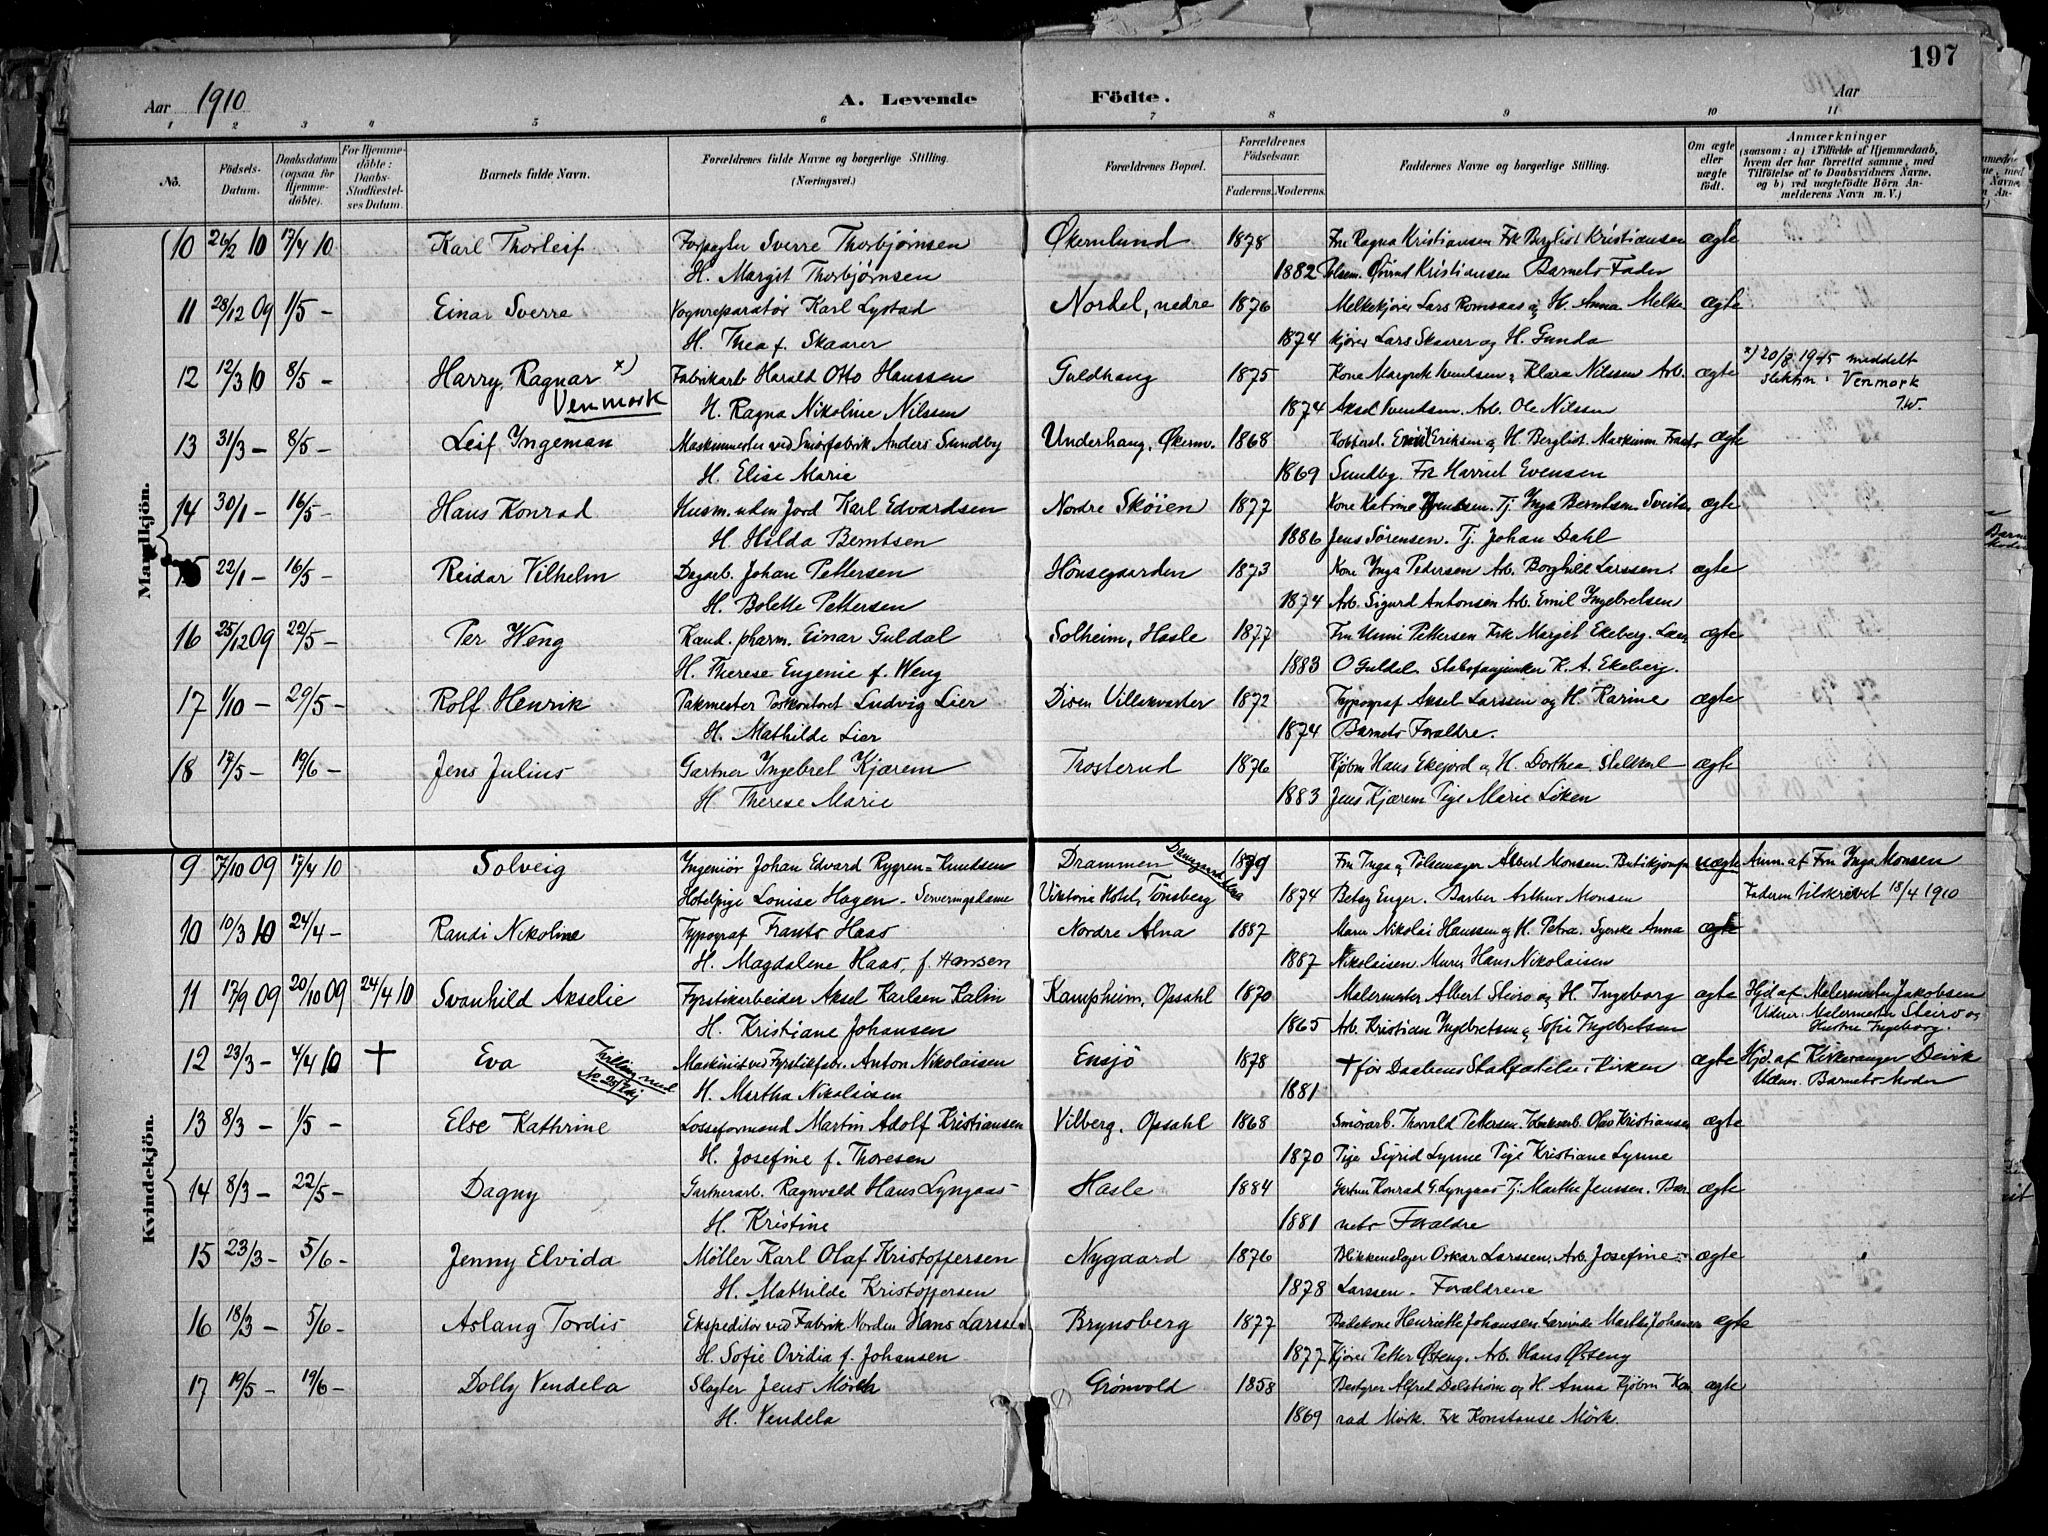 197
Aar 1910 A. Levende Födte. Aar
1 2 3 4 5 6 7 8 9 10 11
No. Födsels-Datum. Daabsdatum (ogsaa for Hjemmedöbte). For Hjemmedöbte: Daabs-Stadfæstelses Datum. Barnets fulde Navn. Forældrenes fulde Navne og borgerlige Stilling. (Næringsvei.) Forældrenes Bopæl. Forældrenes Födselsaar. Faderens. Moderens. Faddernes Navne og borgerlige Stilling. Om ægte eller uægte födt. Anmærkninger (saasom: a) i Tilfælde af Hjemmedaab, hvem der har forrettet samme, med Tilföielse af to Daabsvidners Navne, og b) ved uægtefödte Börn Anmelderens Navn m. V.)
Mandkjön.
10 26/2 10 17/4 10 Karl Thorleif Sverre Thorbjørnsen Økernlund 1878 Fru Ragna Kristiansen Frk Bergliot Kristiansen ægte
H. Margit Thorbjørnsen 1882 Øivind Kristiansen Barnets Fader
11 28/12 09 1/5 - Einar Sverre Vognreparatør Karl Lystad Nordel, nedre 1876 Melkekjører Lars Romsaas og H. Anna Melke- ægte
H. Thea f. Skaarer 1874 kjører Lars Skaarer og H. Gunda
12 12/3 10 8/5 - Harry, Ragnar x) Fabrikarb Harald Otto Hanssen Guldhaug 1875 Kone Svendsen, Klara Nilssen Arb. ægte x) 20/8 1945 meddelt
Venmork H. Ragna Nikoline Nilsen 1874 Aksel Svendsen. Arb. Ole Nilssen slektsn: Venmork
13 31/3 - 8/5 - Leif Yngeman Maskinmester ved Smørfabrik Anders Sundby Underhaug, Økernv. 1868 Emil Eriksen og H. Bergliot. Maskinm. Frants ægte
H. Elise Marie 1869 Sundby. Frk Harriet Evensen
14 30/1 - 16/5 - Hans Konrad Husm. uden Jord Karl Edvardsen Nordre Skøien 1877 Kone Katrine Tj. Inga Berntsen. ægte
H. Hilda Berntsen 1886 Jens Sørensen. Tj. Johan Dahl
15 22/1 - 16/5 - Reidar Vilhelm Dagarb. Johan Pettersen Hønsegaarden 1873 Kone Inga Pedersen Arb. Borghild Larssen. ægte
H. Bolette Pettersen 1874 Arb. Sigurd Antonsen Arb. Emil Ingebretsen
16 25/12 09 22/5 - Per Weng Kand. pharm. Einar Guldal Solheim, Hasle 1877 Fru Unni Pettersen Frk Margit Ekeberg. ægte
H. Therese Eugenie f. Weng 1883 O Guldal K. A. Ekeberg.
17 1/10 - 29/5 - Rolf Henrik Pakmester Postkontoret Ludvig Lier Disen Villakvarter 1872 Typograf Aksel Larssen og H. Karine ægte
H. Mathilde Lier 1874 Barnets Forældre.
18 17/5 - 19/6 - Jens Julius Gartner Ingebret Kjærem Trosterud 1876 Kjøbm Hans Ekejord og H. Dorthea. Staldkarl ægte
H. Therese Marie 1883 Jens Kjærem Pige Marie Løken
Kvindekjön.
9 7/10 09 17/4 10 Solveig Ingeniør Johan Edvard Rygren-Knudsen Drammen 1879 Fru Inga og Pølsemager Albert Monsen. uægte Anm. af Fru Inga Monsen
Hotelpige Louise Hagen - Serveringsdame Viktoria Hotel, Tønsberg 1874 Betsy Enger. Barber Arthur Monsen Faderen tilskrevet 18/4 1910
10 10/3 10 24/4 - Randi Nikoline Typograf Frants Haas Nordre Alna 1887 Murer Nikolai Hanssen og H. Petra. Syerske Anna ægte
H. Magdalene Haas, f. Hansen 1887 Nikolaisen. Murer Hans Nikolaisen
11 17/9 09 20/10 09 24/4 10 Svanhild Akselie Fyrstikarbeider Aksel Karlsen Kalin Kampheim, Opsahl 1870 Malermester Albert Steiro og H. Ingeborg ægte Hjd. af Malermester Jakobsen
H. Kristiane Johansen 1865 Arb. Kristian Ingebretsen og Sofie Ingebretsen Vidner: Malermester Steiro og Hustru Ingeborg.
12 23/3 - 4/4 10 † Eva Tvilling med Maskinist ved Fyrstikfabr. Anton Nikolaisen Ensjö 1878 † før Daabens Stadfæstelse i Kirken ægte Hjd. af Kirkesanger
H. Martha Nikolaisen 1881 Vidner. Barnets Moder
13 8/3 - 1/5 - Else Kathrine Losseformand Martin Adolf Kristiansen Vilberg, Opsahl 1868 Smørarb. Thorvald Pettersen. Olav Kristiansen ægte
H. Josefine f. Thoresen 1870 Pige Sigrid Lynne Pige Kristiane Lynne
14 8/3 - 22/5 - Dagny Gartnerarb. Ragnvald Hans Lyngaas Hasle 1884 Gartner Konrad G. Lyngaas Tj. Marthe Jenssen. Bar- ægte
H. Kristine 1881 nets Forældre
15 23/3 - 5/6 - Jenny Elvida Möller Karl Olaf Kristoffersen Nygaard 1876 Blikkenslager Oskar Larssen. Arb. Josefine ægte
H. Mathilde Kristoffersen 1878 Larssen. Forældrene
16 18/3 - 5/6 - Aslaug Tordis Ekspeditør ved Fabrik Norden Hans Larssen Brynsberg 1877 Badekone Henriette Johansen Marthe Johansen ægte
H. Sofie Ovidia f. Johansen 1877 Kjører Petter Østeng. Arb. Hans Østeng
17 19/5 - 19/6 - Dolly Vendela Slagter Jens Mørch Grønvold 1858 Bestyrer Alfred Dalstrøm og H. Anna Kjøbm Kon- ægte
H. Vendela 1869 rad Mørk. Frk Konstanse Mörk.